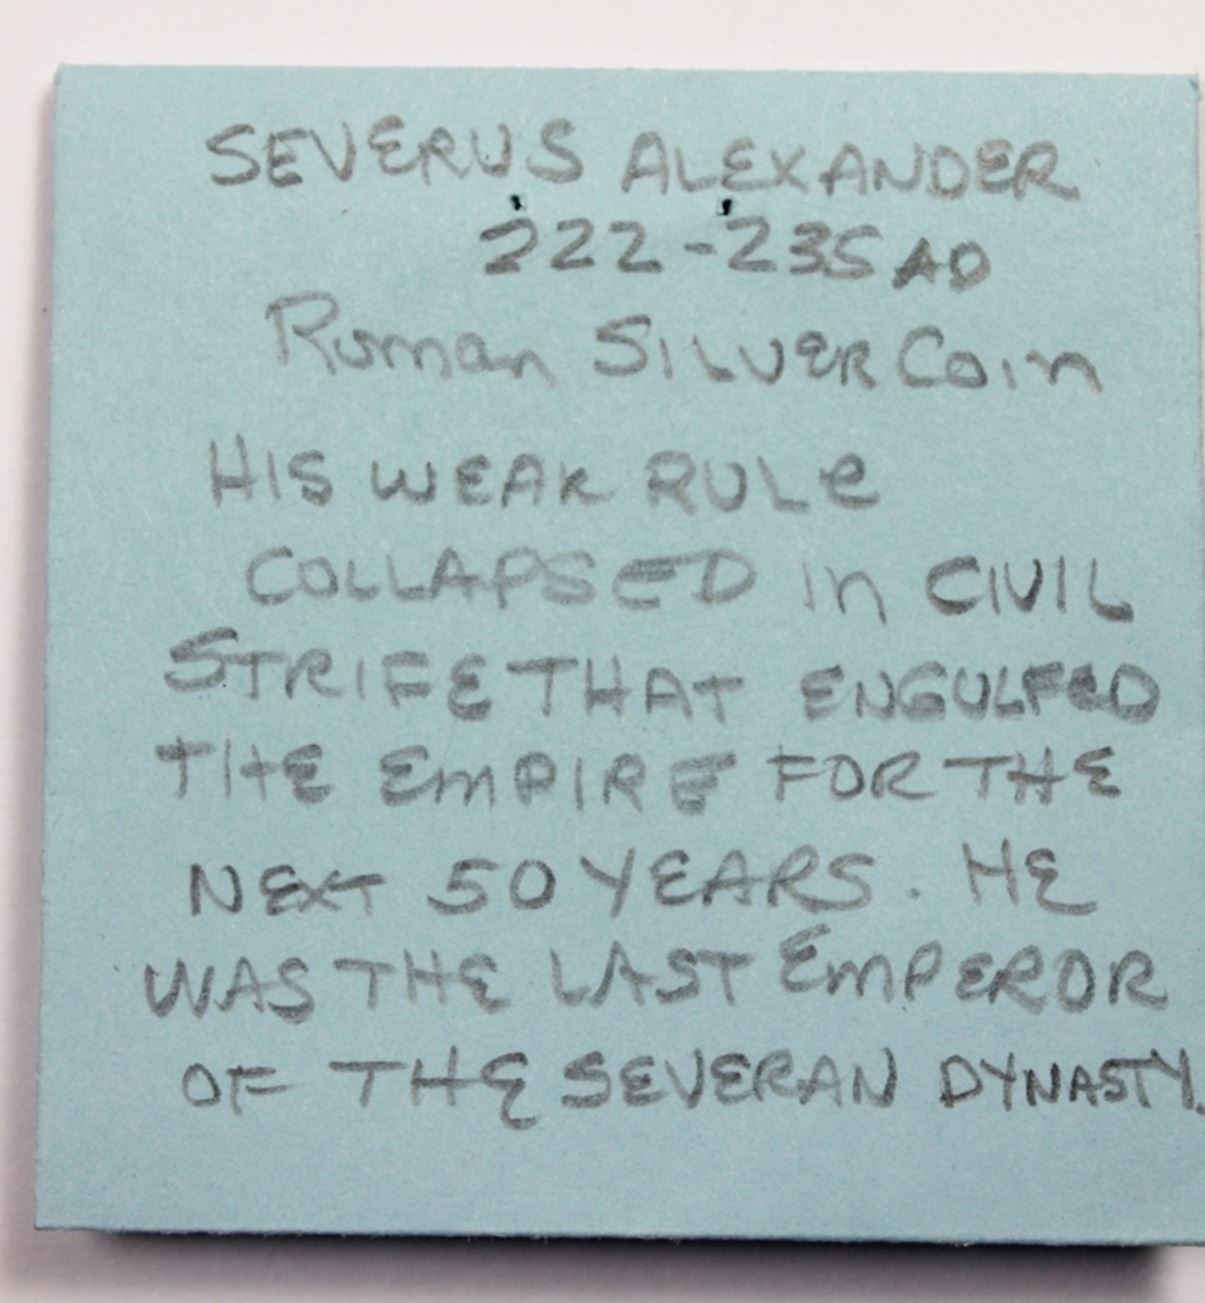 SEVERUS ALEXANDER
222-235 AD
Roman SILVER Coin
HIS WEAK RULe
COLLAPSED in CIVIL
STRIFE THAT ENGULFED
THE EmPIRE FOR THE
NEXT 50 YEARS. HE
WAS THE LAST EmPEROR
OF THE SEVERAN DYNASTY.